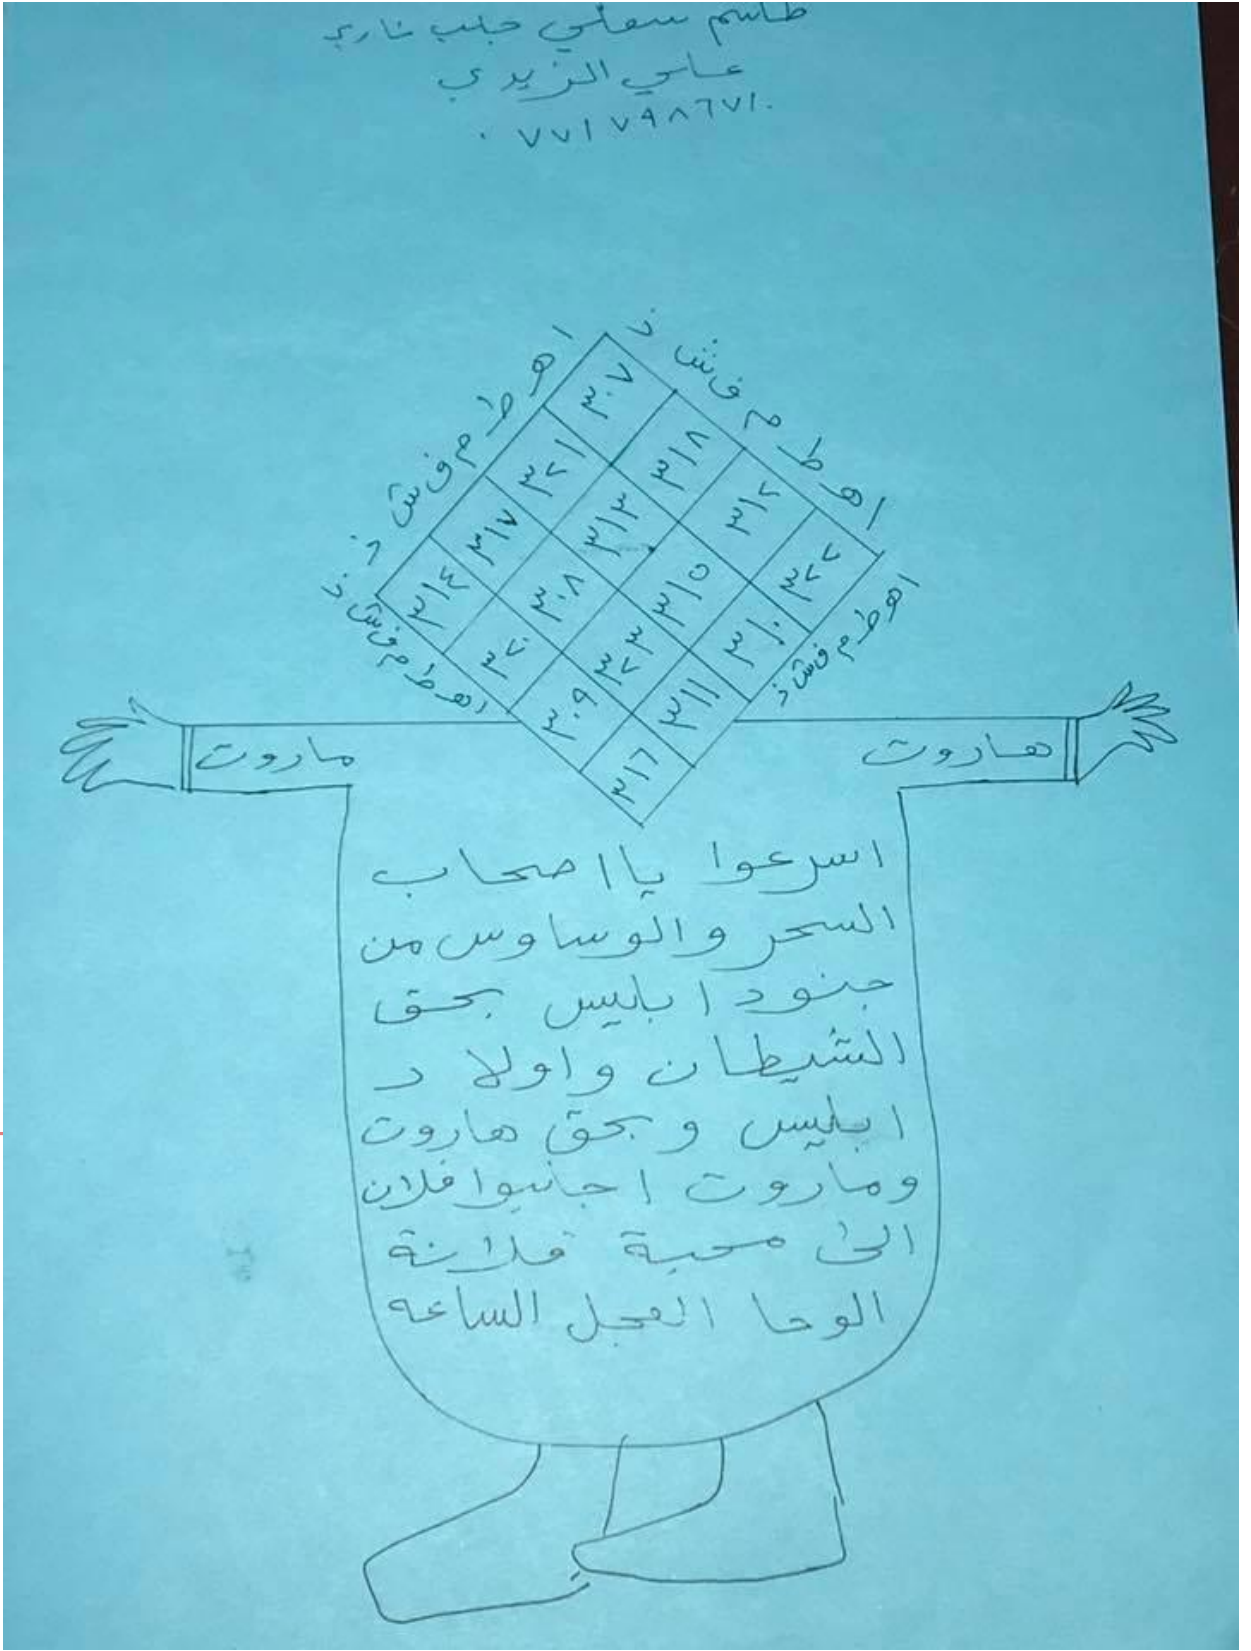 طلسم سفلي جلب ناري
علي الزيدي
٠٧٧١٧٩٨٦٧١٠
ا ه ط م ف ش ذ
ا ه ط م ف ش ذ
ا ه ط م ف ش ذ
ا ه ط م ف ش ذ
٣٠٧ ٣١٨ ٣١٢ ٣٢٢
٣٢١ ٣١٣ ٣١٥ ٣١٠
٣١٧ ٣٠٨ ٣٢٣ ٣١١
٣١٤ ٣٢٠ ٣٠٩ ٣١٦
هاروت
ماروت
اسرعوا يا اصحاب
السحر والوساوس من
جنود ابليس بحق
الشيطان واولاد
ابليس وبحق هاروت
وماروت اجلبوا فلان
الى محبة فلانة
الوحا العجل الساعه